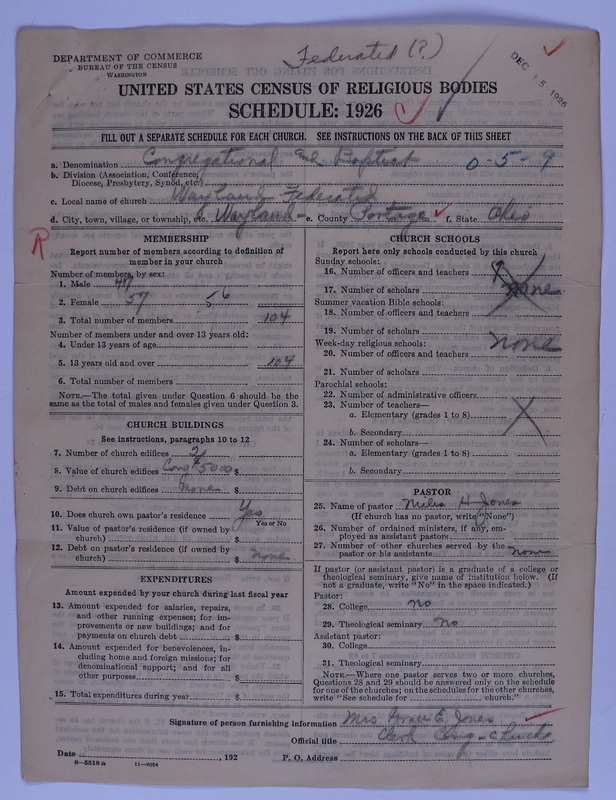 Federated (?)
DEC 15 1926
DEPARTMENT OF COMMERCE
BUREAU OF THE CENSUS
WASHINGTON
UNITED STATES CENSUS OF RELIGIOUS BODIES
SCHEDULE: 1926
FILL OUT A SEPARATE SCHEDULE FOR EACH CHURCH. SEE INSTRUCTIONS ON THE BACK OF THIS SHEET
a. Denomination Congregational and Baptist 0-5-9
b. Division (Association, Conference, Diocese, Presbytery, Synod, etc.)
c. Local name of church Wayland Federated
d. City, town, village, or township, etc. Wayland e. County Portage f. State Ohio
R
MEMBERSHIP
Report number of members according to definition of member in your church
Number of members, by sex:
1. Male 47
2. Female 57 56
3. Total number of members 104
Number of members under and over 13 years old:
4. Under 13 years of age
5. 13 years old and over 104
6. Total number of members
NOTE.—The total given under Question 6 should be the same as the total of males and females given under Question 3.
CHURCH BUILDINGS
See instructions, paragraphs 10 to 12
7. Number of church edifices
8. Value of church edifices Cong $5000
9. Debt on church edifices none
10. Does church own pastor's residence Yes
Yes or No
11. Value of pastor's residence (if owned by church) $
12. Debt on pastor's residence (if owned by church) $ none
EXPENDITURES
Amount expended by your church during last fiscal year
13. Amount expended for salaries, repairs, and other running expenses; for improvements or new buildings; and for payments on church debt $
14. Amount expended for benevolences, including home and foreign missions; for denominational support; and for all other purposes $
15. Total expenditures during year $
CHURCH SCHOOLS
Report here only schools conducted by this church
Sunday schools:
16. Number of officers and teachers 9
17. Number of scholars none
Summer vacation Bible schools:
18. Number of officers and teachers
19. Number of scholars
Week-day religious schools: none
20. Number of officers and teachers
21. Number of scholars
Parochial schools:
22. Number of administrative officers
23. Number of teachers—
a. Elementary (grades 1 to 8)
b. Secondary
24. Number of scholars—
a. Elementary (grades 1 to 8)
b. Secondary
PASTOR
25. Name of pastor Miles H Jones
(If church has no pastor, write "None")
26. Number of ordained ministers, if any, employed as assistant pastors
27. Number of other churches served by the pastor or his assistants none
If pastor (or assistant pastor) is a graduate of a college or theological seminary, give name of institution below. (If not a graduate, write "No" in the space indicated.)
Pastor:
28. College no
29. Theological seminary No
Assistant pastor:
30. College
31. Theological seminary
NOTE.—Where one pastor serves two or more churches, Questions 28 and 29 should be answered only on the schedule for one of the churches; on the schedules for the other churches, write "See schedule for church."
Signature of person furnishing information Mrs Grace E. Jones
Official title Clerk Cong - Church
Date , 192 P. O. Address
8—5518 a 11—9054